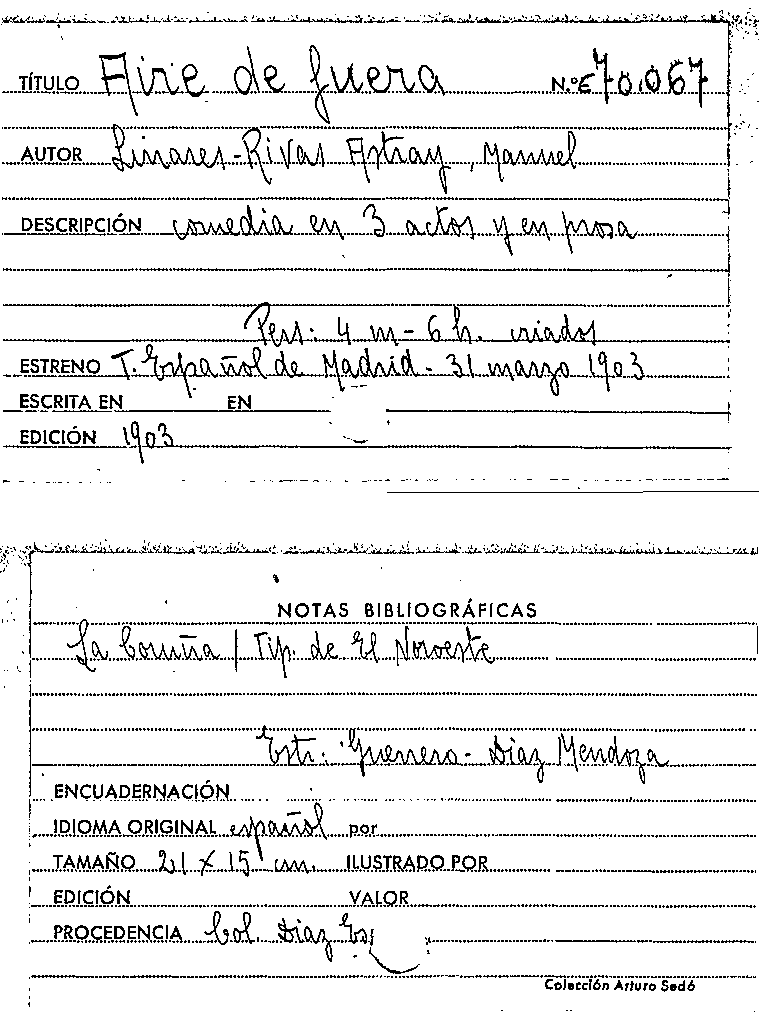 TÍTULO Aire de fuera N.º 70.067
AUTOR Linares-Rivas Astray, Manuel
DESCRIPCIÓN comedia en 3 actos y en prosa
Pers: 4 m - 6 h. criados
ESTRENO T. Español de Madrid - 31 marzo 1903
ESCRITA EN EN
EDICIÓN 1903
NOTAS BIBLIOGRÁFICAS
La Coruña / Tip. de El Noroeste
Estr: Guerrero - Díaz Mendoza
ENCUADERNACIÓN
IDIOMA ORIGINAL español por
TAMAÑO 21 x 15 cm. ILUSTRADO POR
EDICIÓN VALOR
PROCEDENCIA Col. Díaz
Colección Arturo Sedó